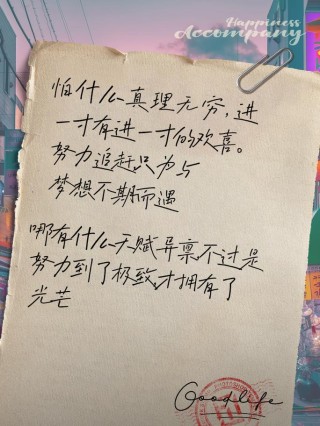 Happiness
Accompany
怕什么真理无穷,进
一寸有进一寸的欢喜。
努力追赶只为与
梦想不期而遇
哪有什么天赋异禀不过是
努力到了极致,才拥有了
光芒
Goodlife